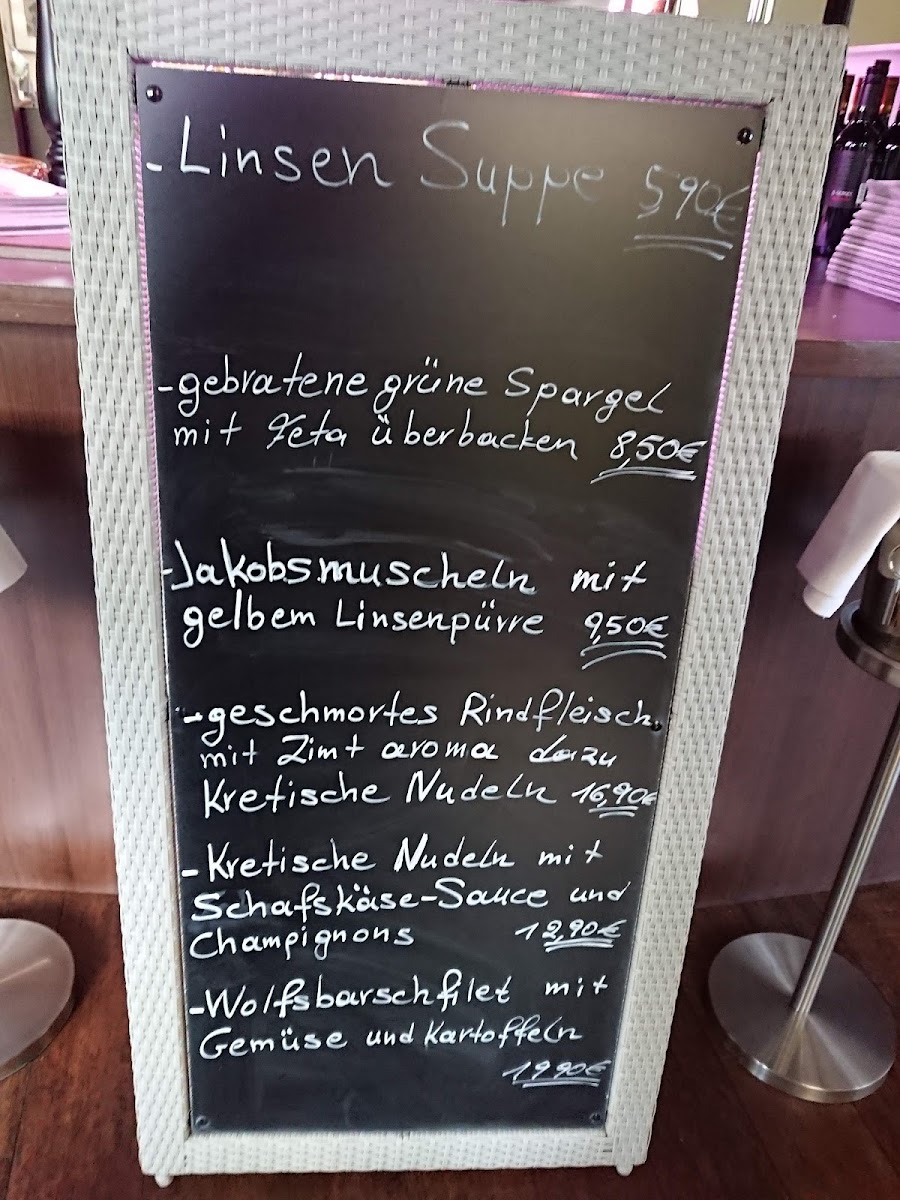 - Linsen Suppe 5,90€
- gebratene grüne Spargel
mit Feta überbacken 8,50€
- Jakobsmuscheln mit
gelbem Linsenpürre 9,50€
- geschmortes Rindfleisch
mit Zimt aroma dazu
Kretische Nudeln 16,90€
- Kretische Nudeln mit
Schafskäse-Sauce und
Champignons 12,90€
- Wolfsbarschfilet mit
Gemüse und Kartoffeln
19,90€